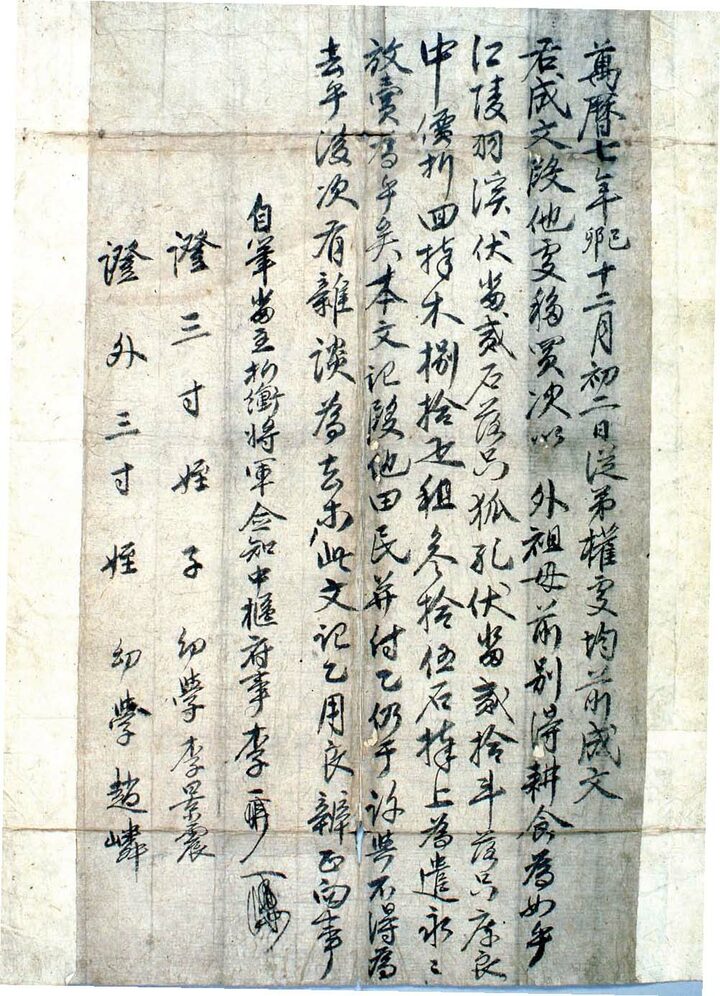 萬曆七年己卯十二月初二日從弟權處均前成文
右成文段他處移買次以 外祖母前別得耕食爲如乎
江陵羽溪伏畓貳石落只狐孔伏畓貳拾斗落只庫良
中價折回捧木捌拾疋租參拾伍石捧上爲遣永〻
放賣爲乎矣本文記段他田民幷付乙仍于許與不得爲
去乎後次有雜談爲去等此文記乙用良辨正向事
自筆畓主折衝將軍僉知中樞府事李
證三寸姪子幼學李景震
證外三寸姪幼學趙嶙